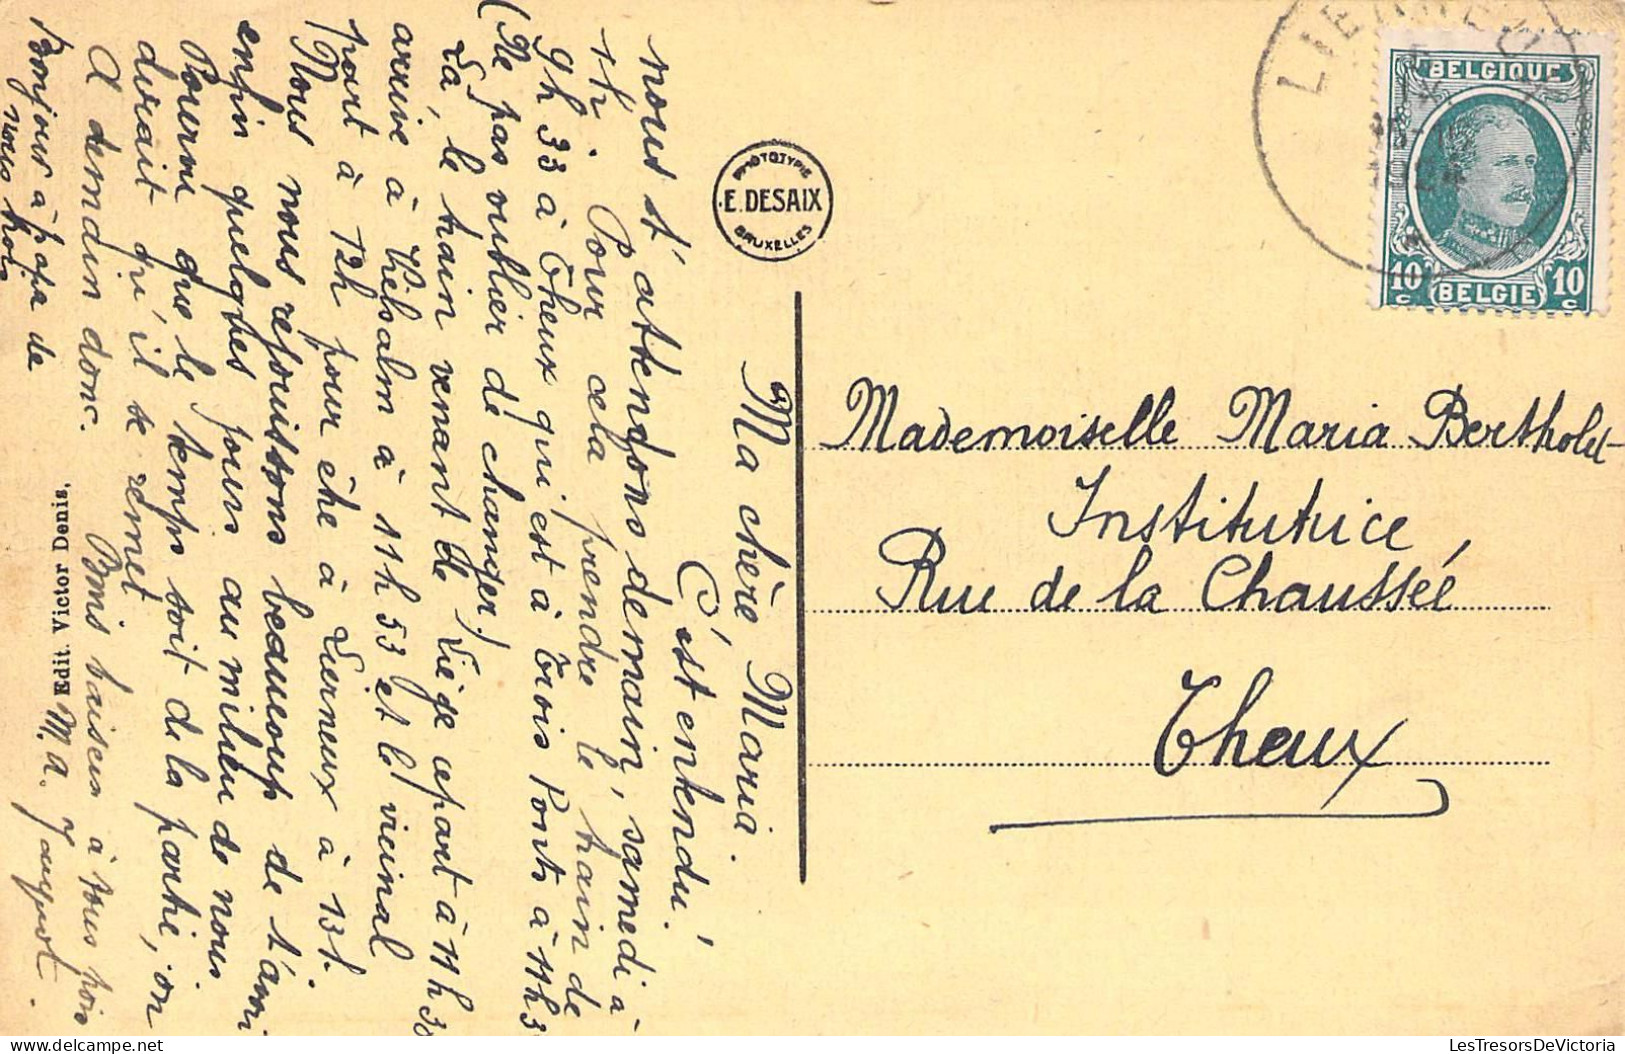 Ma chère Maria.
C'est entendu!
nous t'attendons demain, samedi à
1h. Pour cela prendre le train de
9h 33 à Theux qui est à Trois Ponts à 11h3
(Ne pas oublier de changer!)
Là, le train venant de Liège part à 11h 38
arrive à Vielsalm à 11h 53 et le vicinal
part à 12h pour être à Lierneux à 13h.
Nous nous réjouissons beaucoup de t'avoi
enfin quelques jours au milieu de nous.
Pourvu que le temps soit de la partie, on
dirait qu'il se remet
A demain donc. Bons baisers à tous
Bonjour à papa de
nous trois
M.
Edit. Victor Denis,
PHOTOTYPIE
E. DESAIX
BRUXELLES
LIERNEUX
BELGIQUE
10 c
BELGIE
10 c
Mademoiselle Maria Bertholet
Institutrice,
Rue de la Chaussée
Theux
LesTresorsDeVictoria
delcampe.net